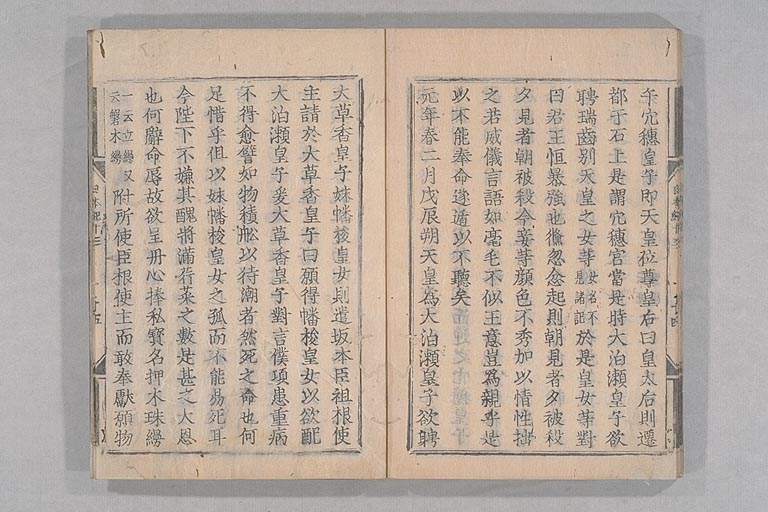 午穴穗皇子即天皇位尊皇后曰皇太后則遷
都于石上是謂穴穗宮當是時大泊瀬皇子欲
聘瑞齒別天皇之女等女名不見諸記於是皇女等對
曰君王恒暴強也儵忽忿起則朝見者夕被殺
夕見者朝被殺今妾等顏色不秀加以情性拙
之若威儀言語如毫毛不似王意豈為親乎是
以不能奉命遂遁以不聽矣
元年春二月戊辰朔天皇為大泊瀬皇子欲聘
大草香皇子妹幡梭皇女則遣坂本臣祖根使
主請於大草香皇子曰願得幡梭皇女以欲配
大泊瀬皇子爰大草香皇子對言僕頃患重病
不得愈譬如物積舩以待潮者然死之命也何
足惜乎但以妹幡梭皇女之孤而不能易死耳
今陛下不嫌其醜將滿荇菜之數是甚之大恩
也何辭命辱故欲呈丹心捧私寶名押木珠縵
一云立縵又云磐木縵附所使臣根使主而敢奉獻願物